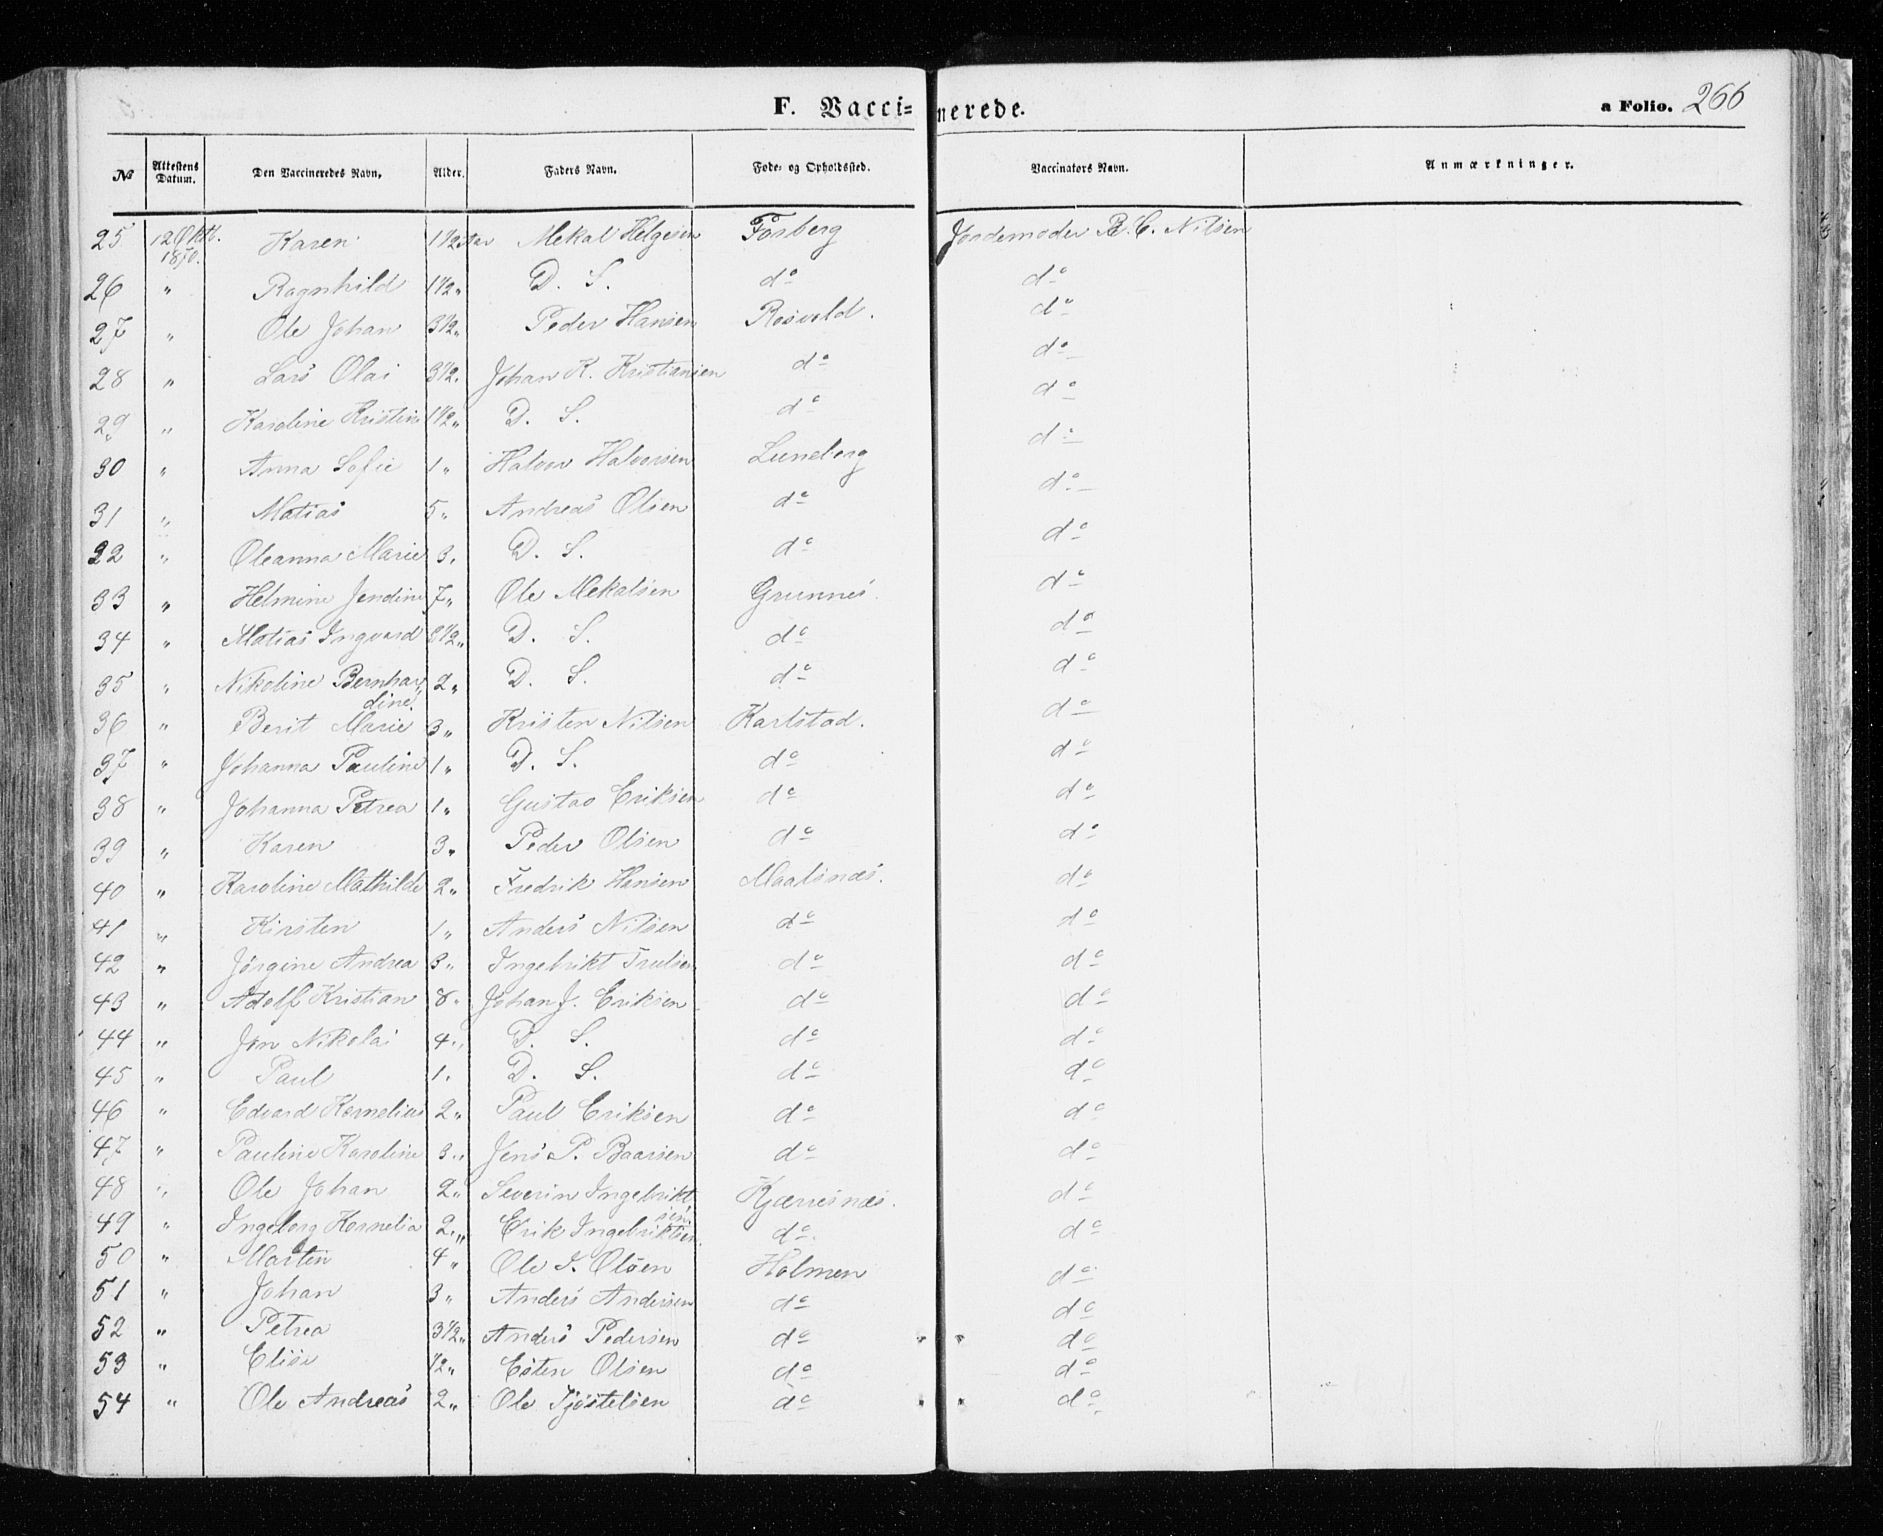 F. Vaccinerede. a Folio. 266
No Attestens Datum. Den Vaccineredes Navn. Alder. Faders Navn. Føde- og Opholdssted. Vaccinators Navn. Anmærkninger.
25 12 Oktb. 1870. Karen 1 1/2 Aar Mekal Helgesen Fosberg Jordemoder B. C. Nilsen
26 " Ragnhild 1 1/2 " D. S. do do
27 " Ole Johan 3 1/2 " Peder Hansen Rosvold. do
28 " Lars Olai 3 1/2 " Johan K. Kristiansen do do
29 " Karoline Kristine 1 1/2 " D. S. do do
30 " Anna Sofie 1 " Halvor Halvorsen Luneborg do
31 " Matias 5 " Andreas Olsen do do
32 " Oleanna Marie 3 " D. S. do do
33 " Helmine Jendine 7 " Ole Mekalsen Grunnes. do
34 " Matias Ingvard 1/2 " D. S. do do
35 " Nikoline Bernhardine. 2 " D. S. do do
36 " Berit Marie 3 " Kristen Nilsen Karlstad. do
37 " Johanna Pauline 1 " D. S. do do
38 " Johanna Petrea 1 " Gustav Eriksen do do
39 " Karen 3 " Peder Olsen do do
40 " Karoline Mathilde 2 " Fredrik Hansen Maalsnæs. do
41 " Kirsten 1 " Anders Nilsen do do
42 " Jørgine Andrea 3 " Ingebrikt Trulsen do do
43 " Adolf Kristian 8 " Johan J. Eriksen do do
44 " Jon Nikolai 4 " D. S. do do
45 " Paul 1 " D. S. do do
46 " Edvard Kornelius 2 " Paul Eriksen do do
47 " Pauline Karoline 3 " Jens P. Baarsen do do
48 " Ole Johan 2 " Severin Ingebriktsen Kjærresnæs. do
49 " Ingeborg Kornelia 2 " Erik Ingebriktsen do do
50 " Martin 4 " Ole I. Olsen Holmen do
51 " Johan 3 " Anders Andersen do do
52 " Petrea 3 1/2 " Anders Pedersen do do
53 " Elise 1/2 " Esten Olsen do do
54 " Ole Andreas 2 " Ole Tjøstelsen do do